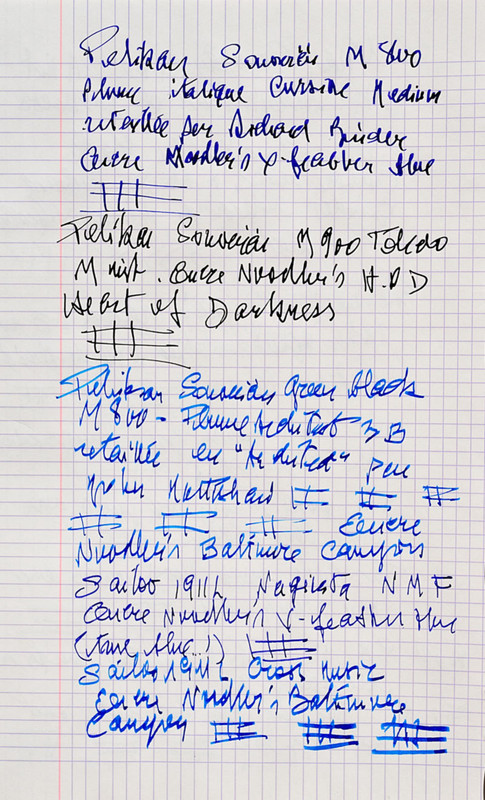 Pelikan Souverän M 800
Plume italique Cursive Medium
retaillée par Richard Binder
Encre Noodler's X-feather blue
Pelikan Souverän M 900 Toledo
M . Encre Noodler's H.O D
Heart of Darkness
Pelikan Souverän Green black
M 800 - Plume Architect 3B
retaillée en "Architect" par
John
Encre
Noodler's Baltimore Canyon
Sailor 1911L Naginata N M F
Encre Noodler's X-feather blue
(True blue...!)
Sailor 1911L Cross Music
Encre Noodler's Baltimore
Canyon